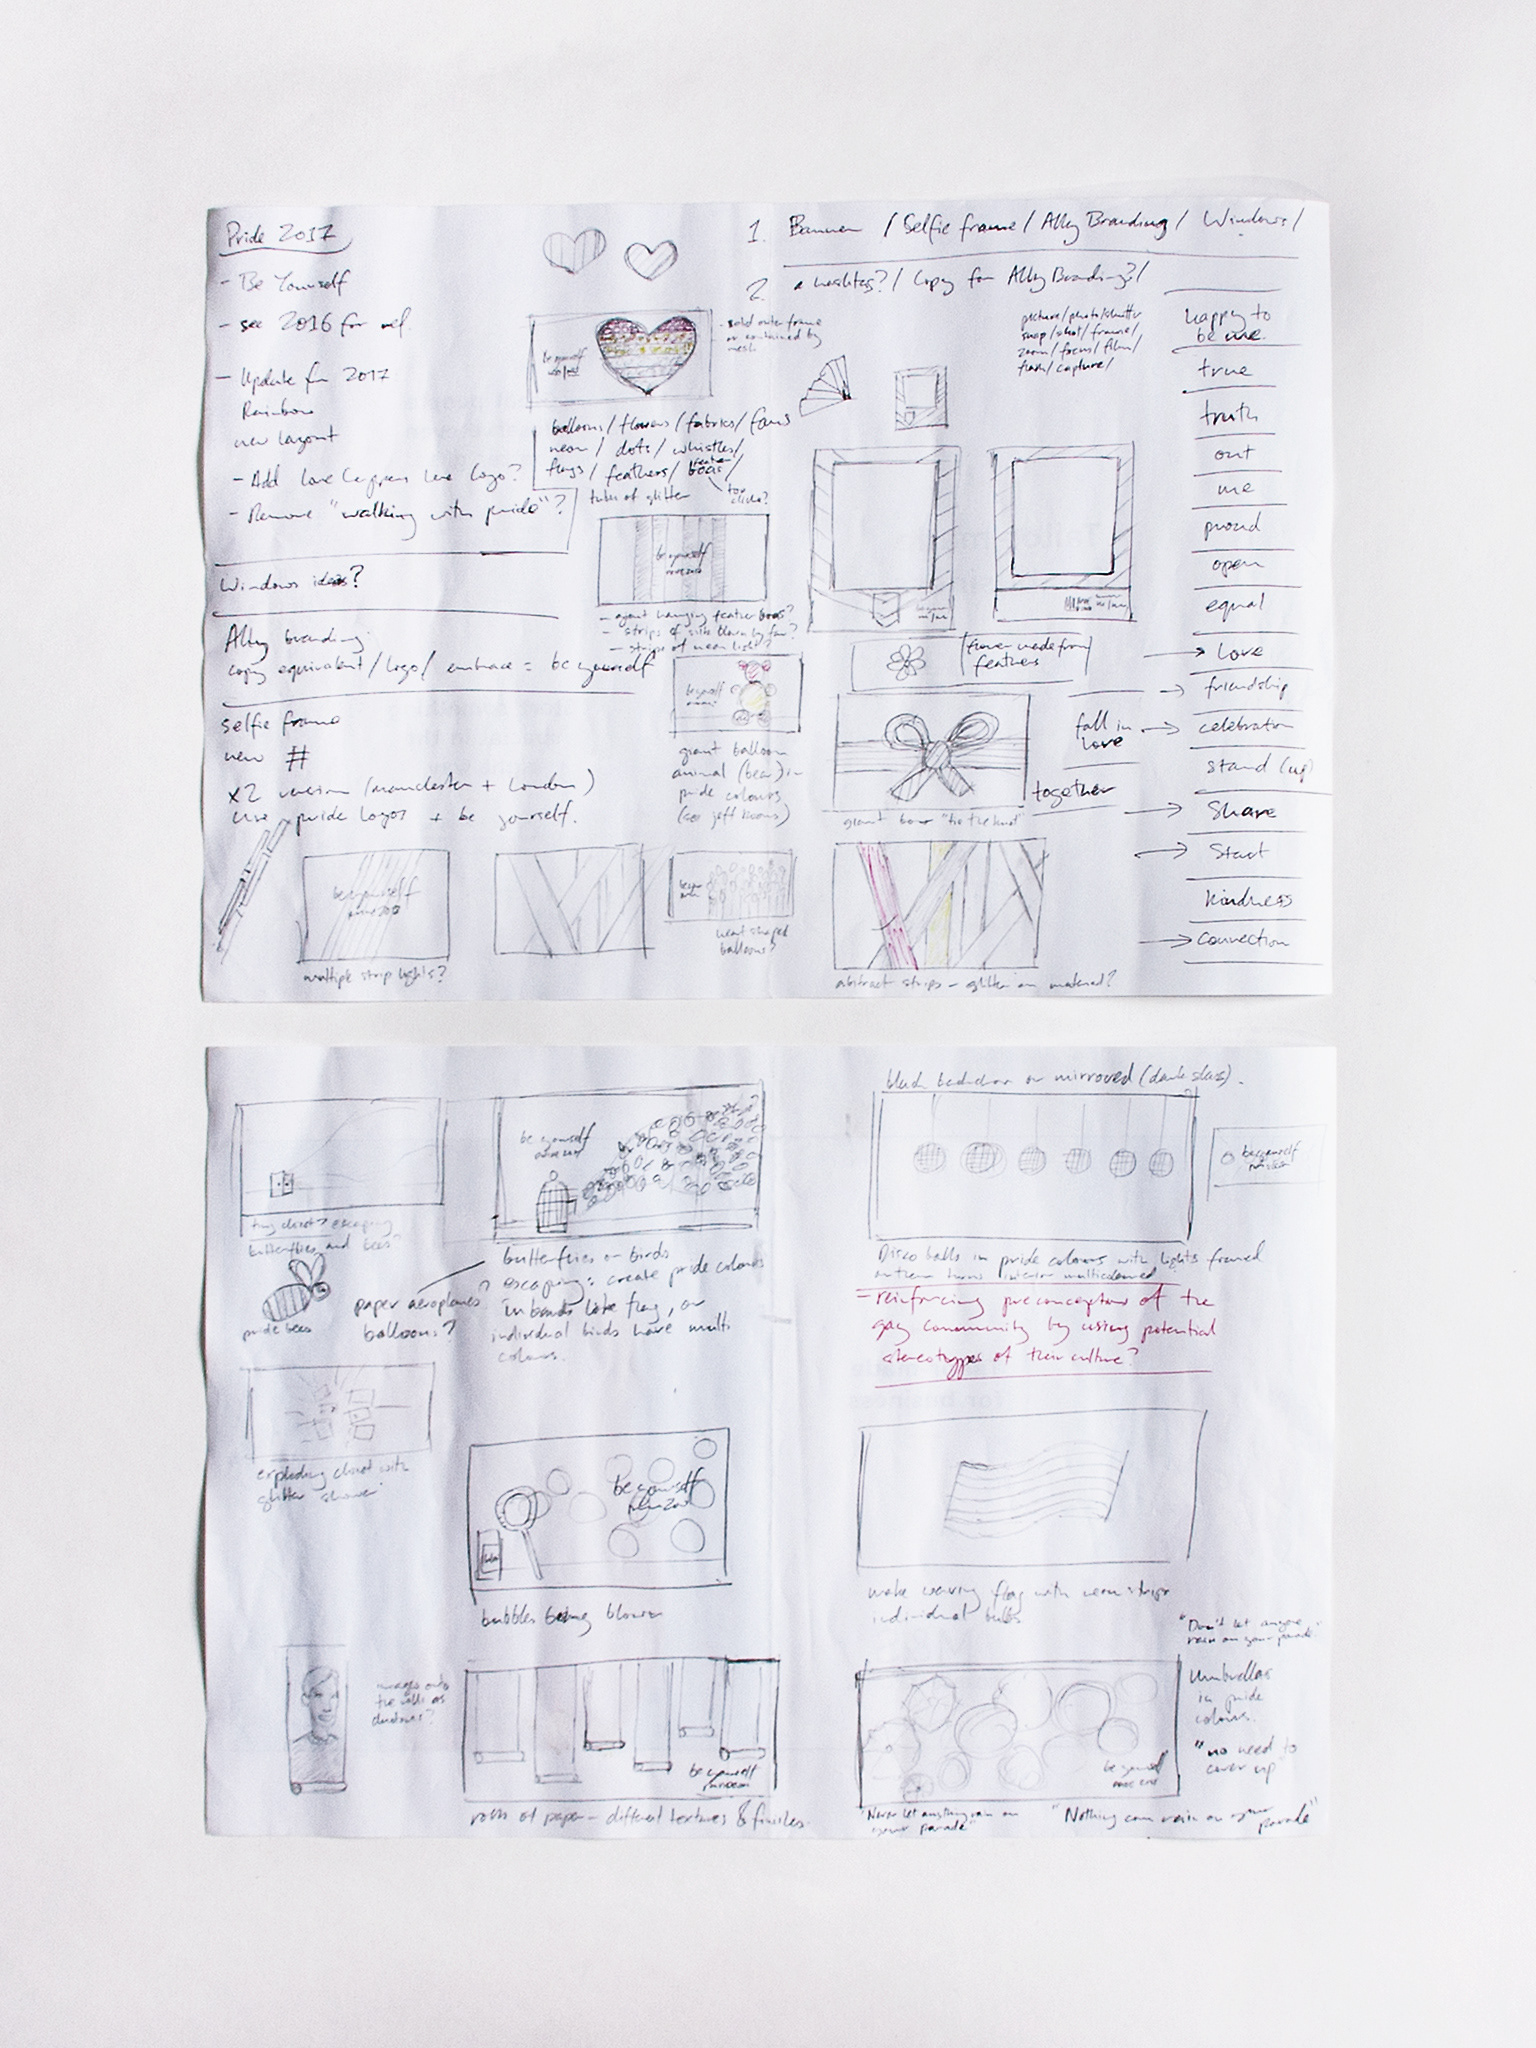 Pride 2017
- Be Yourself
- see 2016 for ref.
- Update for 2017
Rainbow
new layout
- Add Love Happens Here logo?
- Remove "walking with pride"?
Windows ideas?
Ally branding:
copy equivalent / logo / embrace = be yourself
selfie frame
new #
x2 version (manchester + London)
use pride logos + be yourself.
be yourself
multiple strip lights?
be yourself
- solid outer frame
or contained by
mesh
balloons / flowers / fabrics / fans
neon / dots / whistles /
flags / feathers / feather boas /
too
cliche?
tubes of glitter
be yourself
- giant hanging feather boas?
- strips of silk blown by fan?
- strips of neon light?
be yourself
giant balloon
animal (bear) in
pride colours
(see jeff koons)
heart shaped
balloons?
1. Banner / Selfie frame / Ally Branding / Windows /
2. a hashtag? / Copy for Ally Branding? /
picture / photo / shutter
snap / shot / frame /
zoom / focus / film /
flash / capture /
frame made from
feathers
giant bow "tie the knot"
abstract strips - glitter on material?
fall in
love
together
happy to
be me
true
truth
out
me
proud
open
equal
Love
friendship
celebration
stand (up)
Share
Start
kindness
connection
tiny closet? escaping
butterflies and bees?
pride bees
be yourself
paper aeroplanes?
balloons?
butterflies or birds
escaping: create pride colours
in bands like flag, or
individual birds have multi
colours.
exploding closet with
glitter shower
be yourself
bubbles being blown
images onto
the rolls as
be yourself
rolls of paper - different textures & finishes.
black backdrop or mirrored (dark glass).
be yourself
Disco balls in pride colours with lights framed
interior multicoloured
- reinforcing preconceptions of the
gay community by using potential
stereotypes of their culture?
make waving flag with neon strips
individual bulbs
"Don't let anyone
rain on your parade"
Umbrellas
in pride
colours.
"no need to
cover up
be yourself
"Never let anything rain on
your parade"
"Nothing can rain on your parade"